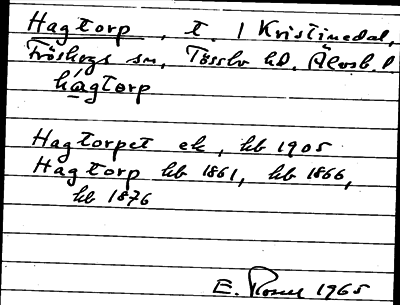 Hagtorp, t. 1 Kristinedal,
Fröskogs sn, Tössbo hd. Älvsb. l.
hágtorp
Hagtorpet ek, kb 1905
Hagtorp hb 1861, kb 1866,
kb 1876
E. 1965